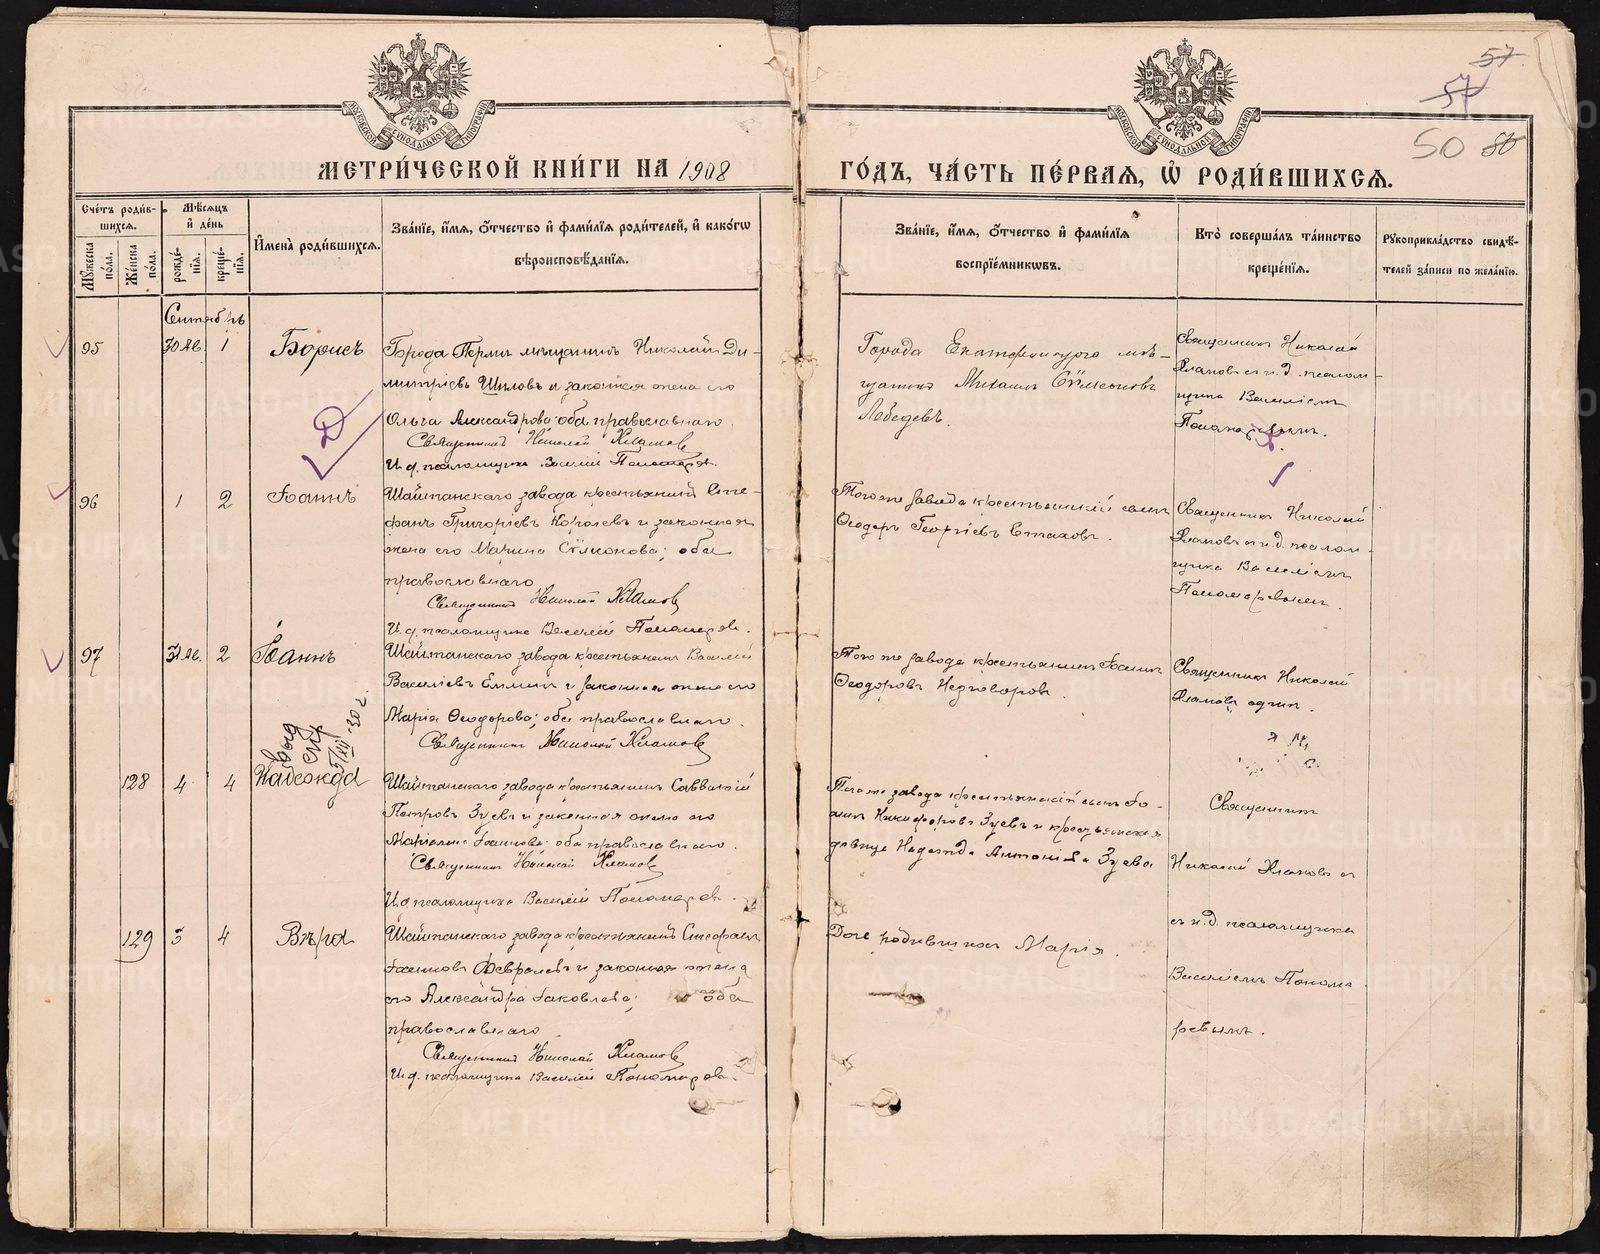 57.
57
50 50
МОСКОВСКОЙ СѴНОДАЛЬНОЙ ТИПОГРАФІИ
МОСКОВСКОЙ СѴНОДАЛЬНОЙ ТИПОГРАФІИ
МЕТРИ́ЧЕСКОЙ КНИ́ГИ НА 1908
ГО́ДЪ, ЧА́СТЬ ПЕ́РВАЯ, Ѡ҆ РОДИ́ВШИХСѦ.
Сче́тъ роди́в-
шихся.
Мꙋ́жеска по́ла.
Же́нска по́ла.
Мѣ́сяцъ
и҆ де́нь
рожде́-
нїя.
креще́-
нїя.
И҆мена̀ роди́вшихся.
Зва́нїе, и҆́мя, о҆́тчество и҆ фами́лїя роди́телей, и҆ како́гѡ
вѣроисповѣ́данїя.
Зва́нїе, и҆́мя, о҆́тчество и҆ фами́лїя
воспрїе́мникѡвъ.
Кто̀ соверша́лъ та́инство
креще́нїя.
Рꙋкоприкла́дство свидѣ́-
телей за́писи по жела́нїю.
Сентябрь
95
30 Ав.
1
Борисъ
Города Перми мѣщанинъ Николай Ди-
митріевъ Шиловъ и законная жена его
Ольга Александрова; оба православнаго.
Священникъ Николай Хламов
И. д. псаломщика Василій Пономарев.
Города Екатеринбурга мѣ-
щанинъ Михаилъ Сѵмеоновъ
Лебедевъ.
Священникъ Николай
Хламовъ с и. д. псалом-
щика Василіемъ
Пономаревымъ.
96
1
2
Іоаннъ
Шайтанскаго завода крестьянинъ Сте-
фанъ Григоріевъ Королевъ и законная
жена его Марина Сѵмонова; оба
православнаго
Священникъ Николай Хламов
И. д. псаломщика Василій Пономарев.
Тогоже завода крестьянскій сынъ
Ѳеодоръ Георгіевъ Стаховъ.
Священникъ Николай
Хламовъ с и. д. псалом-
щика Василіемъ
Пономаревымъ.
97
31 Ав.
2
Іоаннъ
Шайтанскаго завода крестьянинъ Василій
Василіевъ Еминъ и законная жена его
Марія Ѳеодорова; оба православнаго.
Священникъ Николай Хламов
Тогоже завода крестьянинъ Іоаннъ
Ѳеодоровъ
Священникъ Николай
Хламовъ одинъ.
выд
спр
5/XII-30 г.
128
4
4
Надежда
Шайтанскаго завода крестьянинъ Савватій
Петровъ Зуевъ и законная жена его
Іоаннова; оба православнаго.
Священникъ Николай Хламов
И. д. псаломщика Василій Пономарев.
Тогоже завода крестьянскій сынъ Іо-
аннъ Никифоровъ Зуевъ и крестьянская
дѣвица Надежда Антоніева Зуева
Священникъ
Николай Хламовъ
129
3
4
Вѣра
Шайтанскаго завода крестьянинъ Стефанъ
Іоанновъ Февралевъ и законная жена
его Александра Іаковлева; оба
православнаго
Священникъ Николай Хламов
И. д. псаломщика Василій Пономарев.
Дочь Марія.
съ и. д. псаломщика
Василіемъ Понома
ревымъ.
METRIKI.GASO-URAL.RU